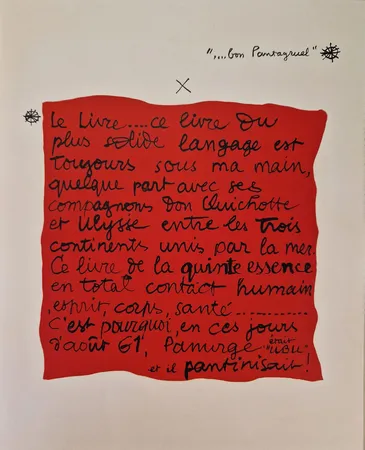 "....bon Pantagruel"
X
Le Livre....ce livre du
plus solide langage est
toujours sous ma main,
quelque part avec ses
compagnons Don Quichotte
et Ulysse entre les trois
continents unis par la mer.
Ce livre de la quinte essence
en total contact humain
,esprit, corps, santé............
C'est pourquoi, en ces jours
d'août 61, Panurge était "UBU"
et il pantinisait!